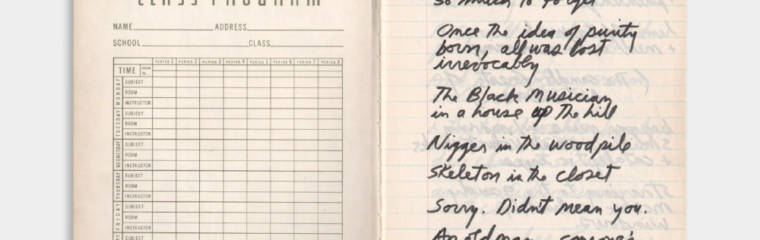 CLASS PROGRAM
NAME ADDRESS
SCHOOL CLASS
PERIOD 1 PERIOD 2 PERIOD 3 PERIOD 4 PERIOD 5 PERIOD 6 PERIOD 7 PERIOD 8
TIME
MONDAY
SUBJECT
ROOM
INSTRUCTOR
TUESDAY
SUBJECT
ROOM
INSTRUCTOR
WEDNESDAY
SUBJECT
ROOM
INSTRUCTOR
THURSDAY
SUBJECT
ROOM
INSTRUCTOR
FRIDAY
SUBJECT
ROOM
INSTRUCTOR
SUBJECT
so much to forget
Once the idea of purity
born, all was lost
irrevocably
The Black Musician
in a house up the hill
Nigger in the woodpile
Skeleton in the closet
Sorry. Didnt mean you.
An old man, someone's